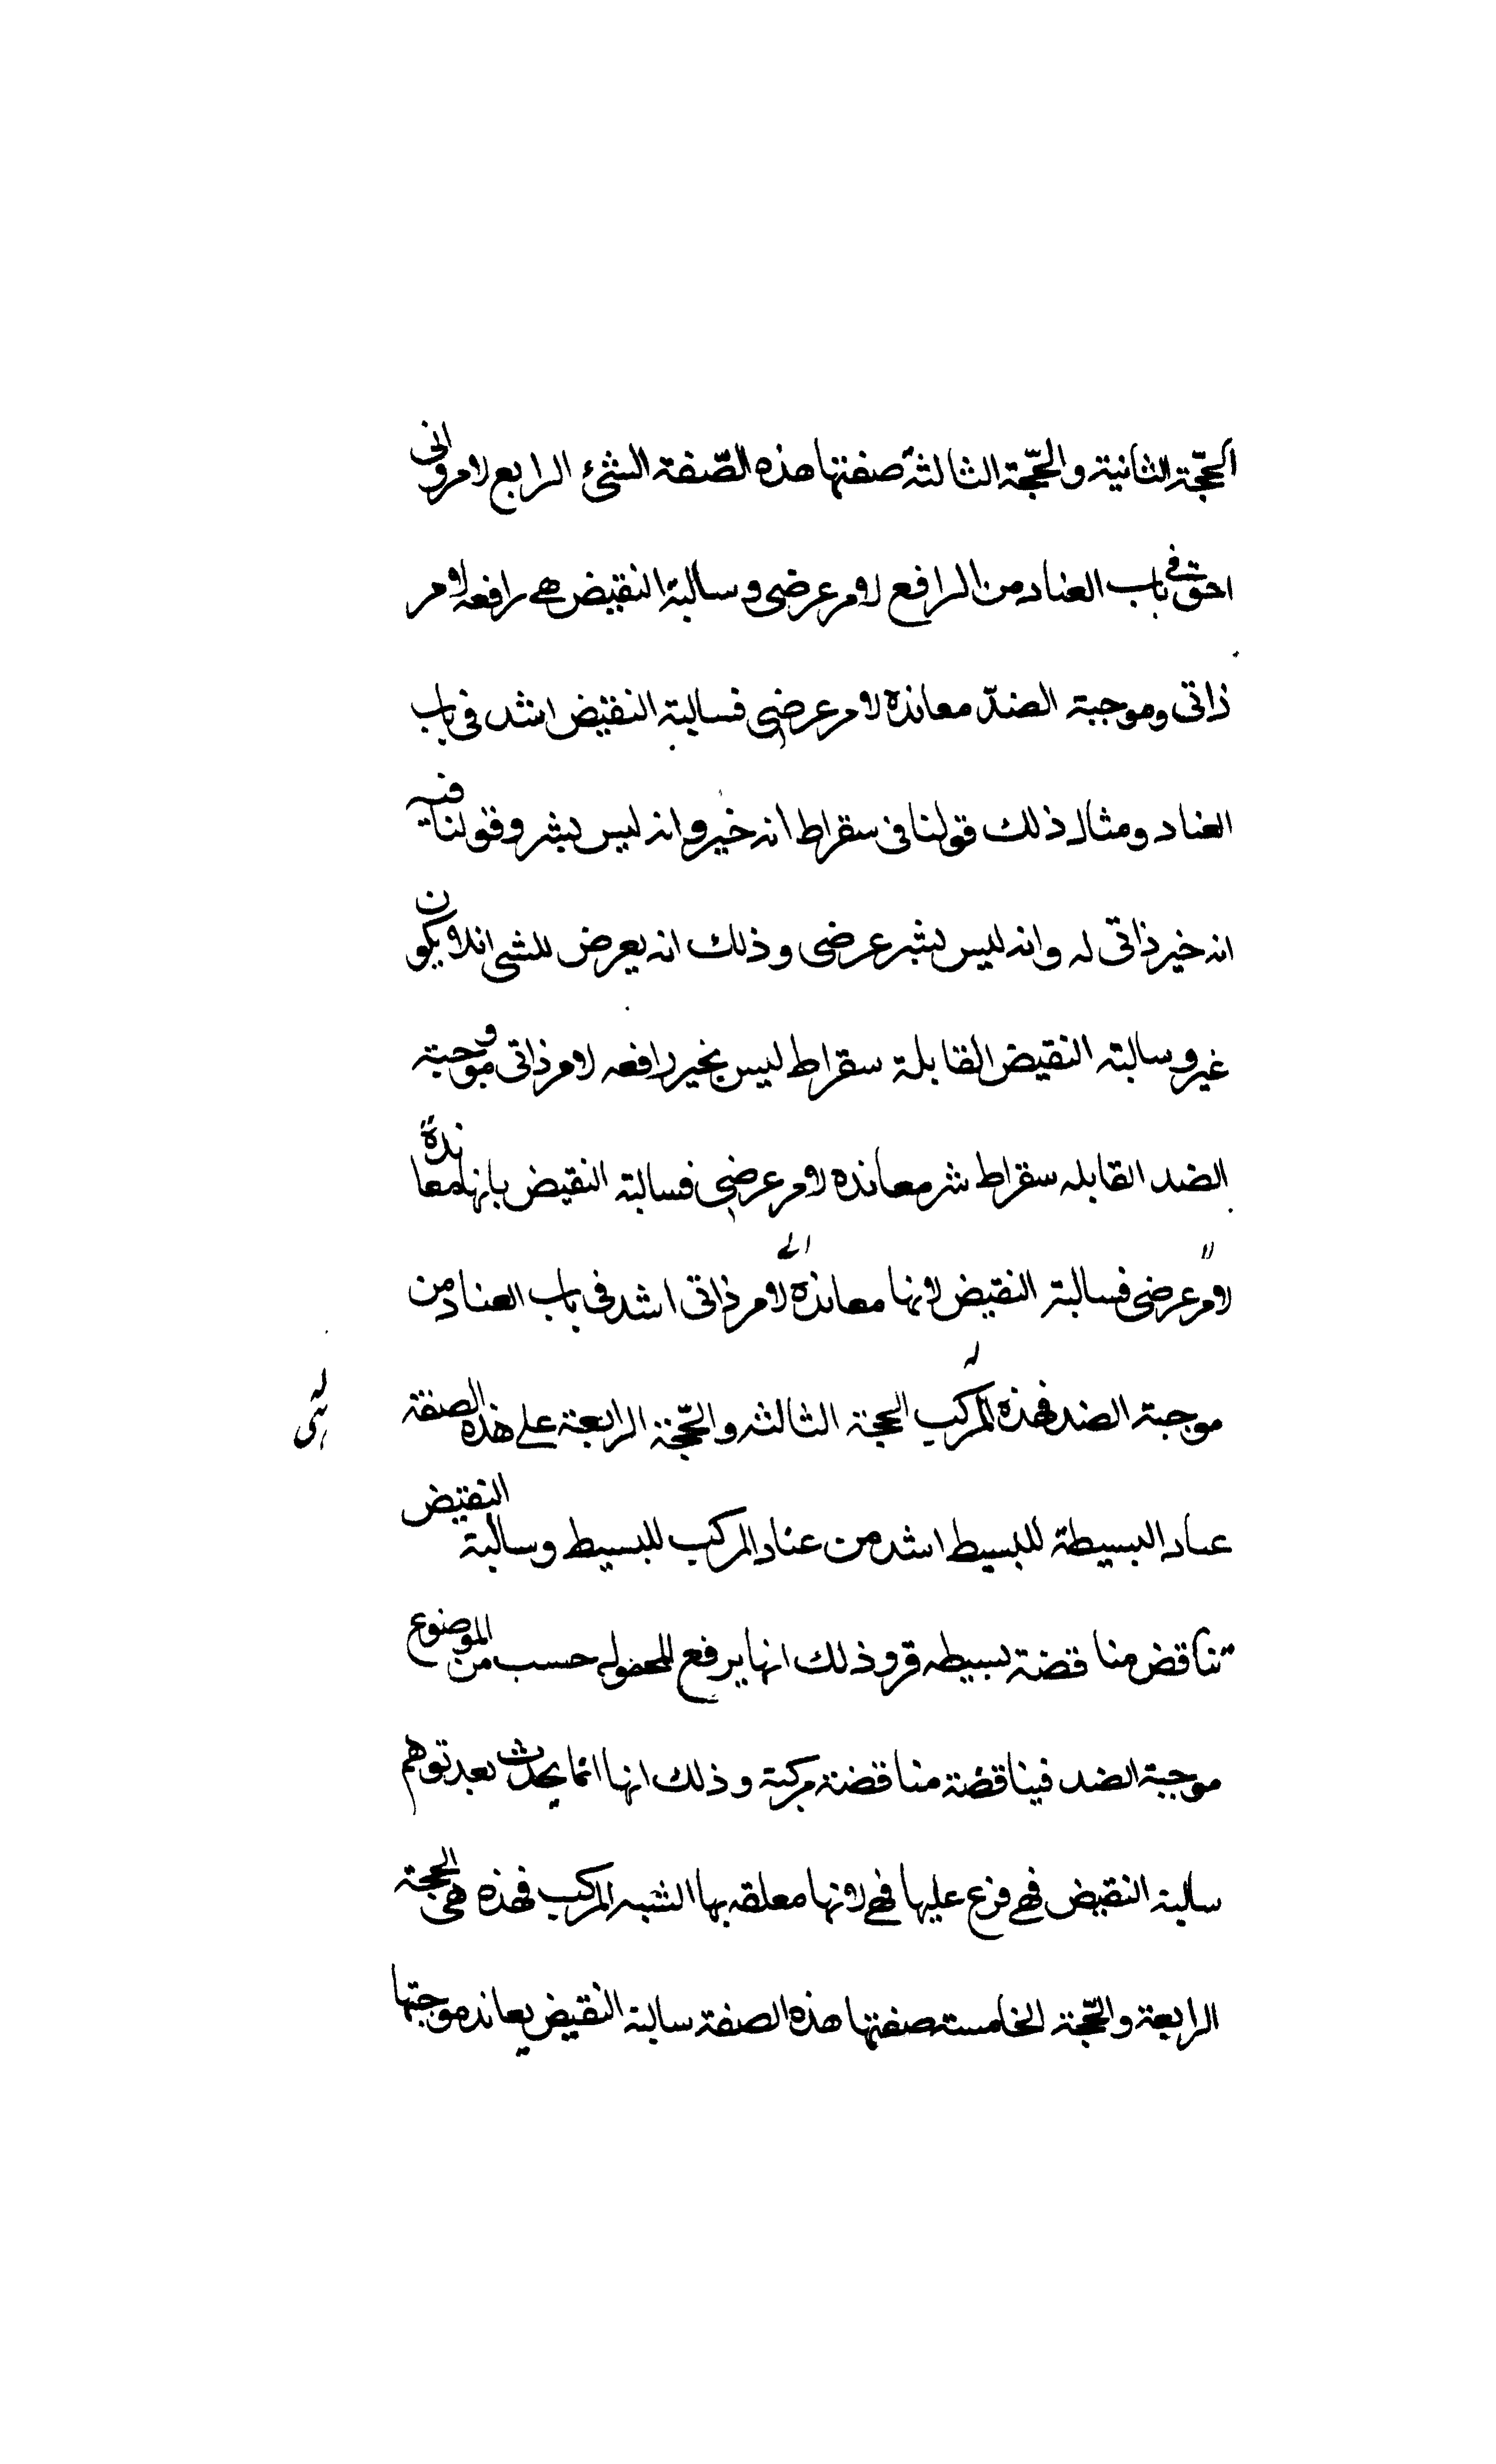 الحجّة الثانية والحجّة الثالثة صفتها هذه الصّفة الشئ الرابع لامر واني
احق في باب العناد من الرافع لامر عرضي وسالبة النقيض هي رافعه لامر
ذاتي وموجبة الضدّ معانده لامر عرضي فسالبة النقيض اشد في باب
العناد ومثال ذلك قولنا في سقراط انه خير وانه ليس بشر وقولنا فيه
انه خير ذاتي له وانه ليس بشر عرضي وذلك انه يعرض للشي انلا يكون
غير وسالبته النقيض القابلة سقراط ليس بخير رافعه لامر ذاتي وموجبة
الضد القابله سقراط شر معانده لامر عرضي فسالبة النقيض بانها معاندة
لامر عرضي فسالبة النقيض لانها معاندة لامر ذاتي اشد في باب العناد من
موجبة الضد فهذه المركب الحجة الثالثه والحّجة الرابعة على هذه الصفة
عناد البسيطة للبسيط اشد من عناد المركب للبسيط وسالبة النقيض
تناقض مناقضة بسيطه قر وذلك انها يرفع المحموله حسب من الموضوع
موجبة الضد فيناقضة مناقضة مركبة وذلك انها انما يحدث بعد توهم
سالبة النقيض فهي فرع عليها فهي لانها معلقه بها الشبه المركب فهذه هي الحجة
الرابعة والحّجة الخامسته صفتها هذه الصفة سالبة النقيض يعاند موجبتها